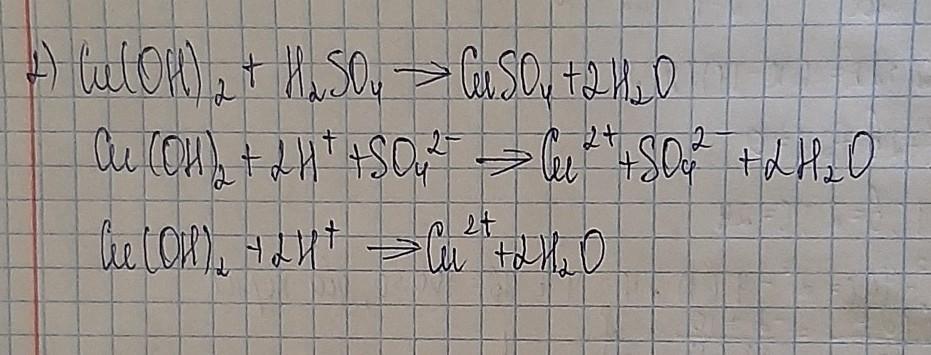 1) Cu(OH)₂ + H₂SO₄ → CuSO₄ + 2H₂O
Cu(OH)₂ + 2H⁺ + SO₄²⁻ → Cu²⁺ + SO₄²⁻ + 2H₂O
Cu(OH)₂ + 2H⁺ → Cu²⁺ + 2H₂O